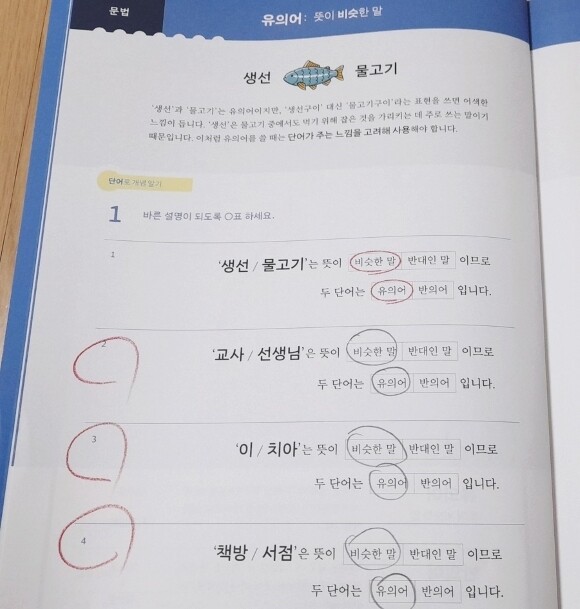 문법
유의어: 뜻이 비슷한 말
생선 물고기
'생선'과 '물고기'는 유의어이지만, '생선구이' 대신 '물고기구이'라는 표현을 쓰면 어색한
느낌이 듭니다. '생선'은 물고기 중에서도 먹기 위해 잡은 것을 가리키는 데 주로 쓰는 말이기
때문입니다. 이처럼 유의어를 쓸 때는 단어가 주는 느낌을 고려해 사용해야 합니다.
단어로 개념 알기
1 바른 설명이 되도록 ○표 하세요.
1 '생선 / 물고기'는 뜻이 비슷한 말 반대인 말 이므로
두 단어는 유의어 반의어 입니다.
2 '교사 / 선생님'은 뜻이 비슷한 말 반대인 말 이므로
두 단어는 유의어 반의어 입니다.
3 '이 / 치아'는 뜻이 비슷한 말 반대인 말 이므로
두 단어는 유의어 반의어 입니다.
4 '책방 / 서점'은 뜻이 비슷한 말 반대인 말 이므로
두 단어는 유의어 반의어 입니다.